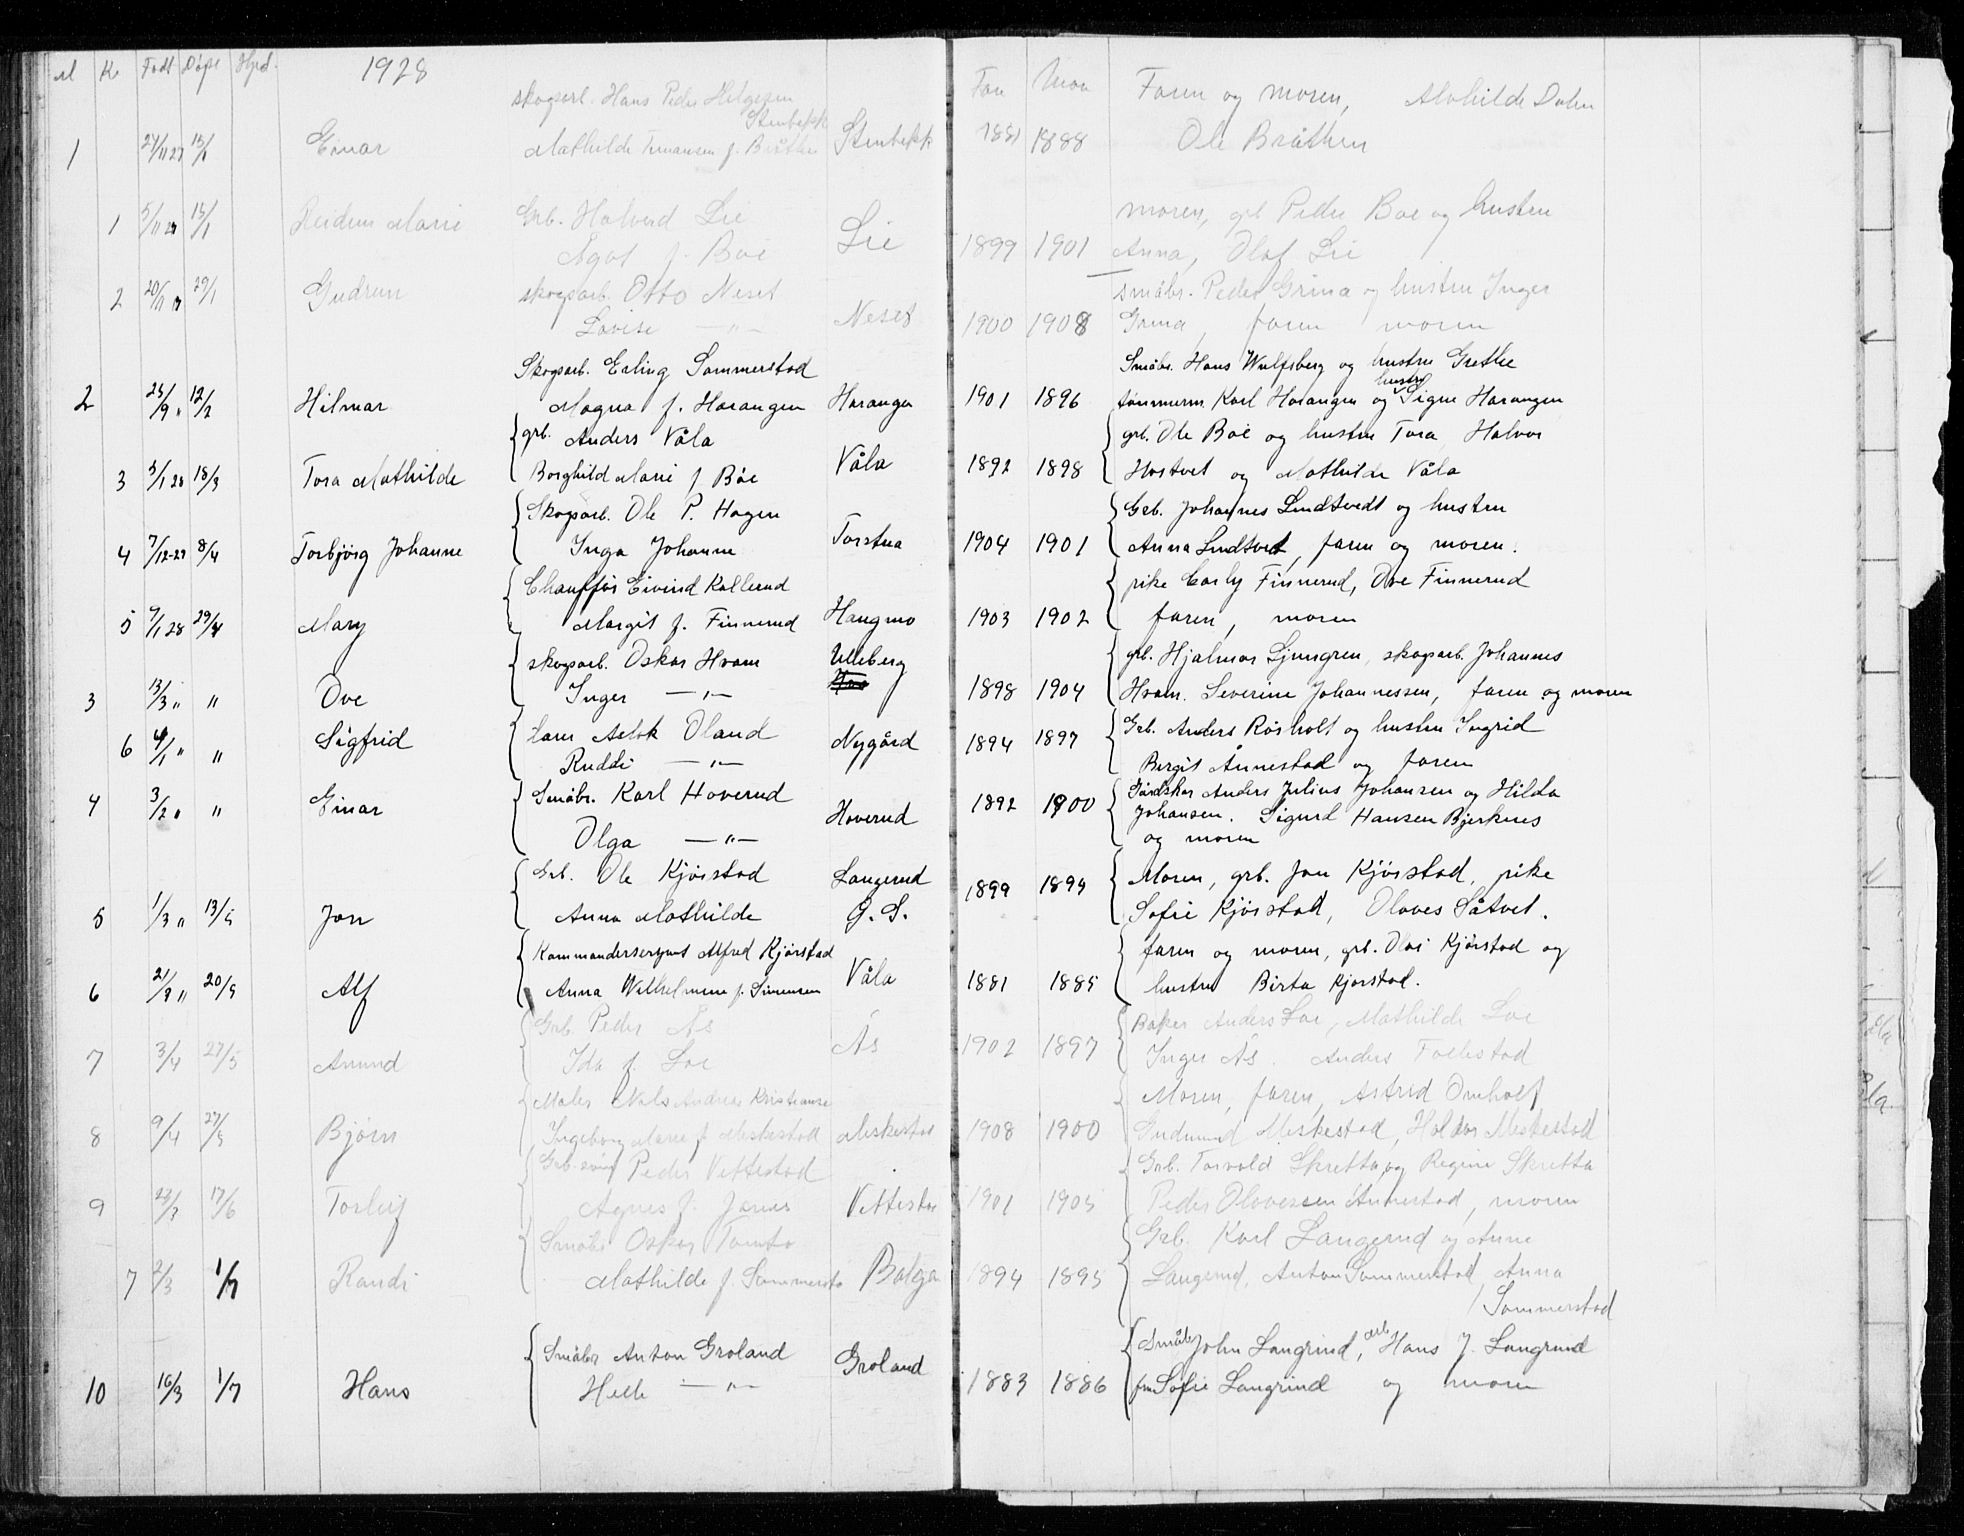 M K Født Døpt Hjd. 1928 Far Mor
skogsarb. Hans Peder Helgesen Faren og moren, Mathilde Dalen
Stenbekk
1 24/11 27 15/1 Einar Mathilde f. Bråthen Stenbekk 1881 1888 Ole Bråthen
Grb. Halvord Lie moren, grb Peder Bøe og hustru
1 5/11 27 15/1 Reidun Marie Agot f. Bøe Lie 1899 1901 Anna, Olaf Lie
skogsarb. Otto Neset småbr. Peder Grina og hustru Inger
2 20/11 29/1 Gudrun Lovise —"— Neset 1900 1908 Grina, faren moren
Skogsarb. Erling Sommerstad Småbr. Hans Wulfsberg og hustru Grethe
hustru
2 25/9 " 12/2 Hilmar Magna f. Harangen Harangen 1901 1896 tømmerm. Karl Harangen og Signe Harangen
grb. Anders Våla grb. Ole Bøe og hustru Tora, Halvor
3 5/1 28 18/3 Tora Mathilde Borghild Marie f. Bøe Våla 1892 1898 Hostvet og Mathilde Våla
Skogsarb. Ole P. Hagen Grb. Johannes Lindtvedt og hustru
4 7/12-27 8/4 Torbjørg Johanne Inga Johanne Torstua 1904 1901 Anna Lindtvet, faren og moren.
Chauffør Eivind Kollerud pike Carly Finnerud, Ove Finnerud
5 9/1 28 29/4 Mary Margit f. Finnerud Haugmo 1903 1902 faren, moren
skogsarb. Oskar Hvam Ulleberg grb. Hjalmar Ljungren, skogsarb. Johannes
3 13/3 " " Ove Inger —"— 1898 1904 Hvam. Severine Johannessen, faren og moren
Aslak Oland Grb. Anders Rosholt og hustru Ingrid
6 4/1 " " Sigfrid Ruddi —"— Nygård 1894 1897 Bergit Ånnestad og faren
Småbr. Karl Hoverud Gårdskar Anders Julius Johansen og Hilda
4 3/2 " " Einar Hoverud 1892 1900 Johansen. Sigurd Hansen Bjerknes
Olga —"— og moren
Grb. Ole Kjørstad Langerud 1899 1894 Moren, grb. Jon Kjørstad, pike
5 1/3 " 13/5 Jon Anna Mathilde G. S. Sofie Kjørstad, Olaves Såtvet.
Kommandersergent Alfred Kjørstad faren og moren, grb. Kjørstad og
6 21/3 " 20/5 Alf Anna Wilhelmine f. Simensen Våla 1881 1885 hustru Birta Kjørstad.
Grb. Peder Ås Baker Anders Loe, Mathilde Loe
7 3/4 27/5 Amund Ida f. Loe Ås 1902 1897 Inger Ås. Anders Follestad
Maler Nils Andreas Kristiansen Moren, faren, Astrid Omholt
8 9/4 27/5 Bjørn Ingeborg Marie f. Meskestad Meskestad 1908 1900 Gudmund Meskestad, Haldor Meskestad
Peder Vettestad Grb. Torvald Skretta og Regine Skretta
9 17/6 Torleif Agnes f. Vettestad 1901 1905 Peder Olavessen Annestad, moren
Småbr Oskar Tomta Grb. Karl Langerud og Anne
7 2/3 1/7 Randi Mathilde f. Sommerstad 1894 1895 Langerud, Anton Sommerstad, Anna
Sommerstad
Småbr Anton Groland Småbr John Langrind, arb. Hans J. Langrind
10 16/3 1/7 Hans Helle —"— Groland 1883 1886 fru Sofie Langrind og moren